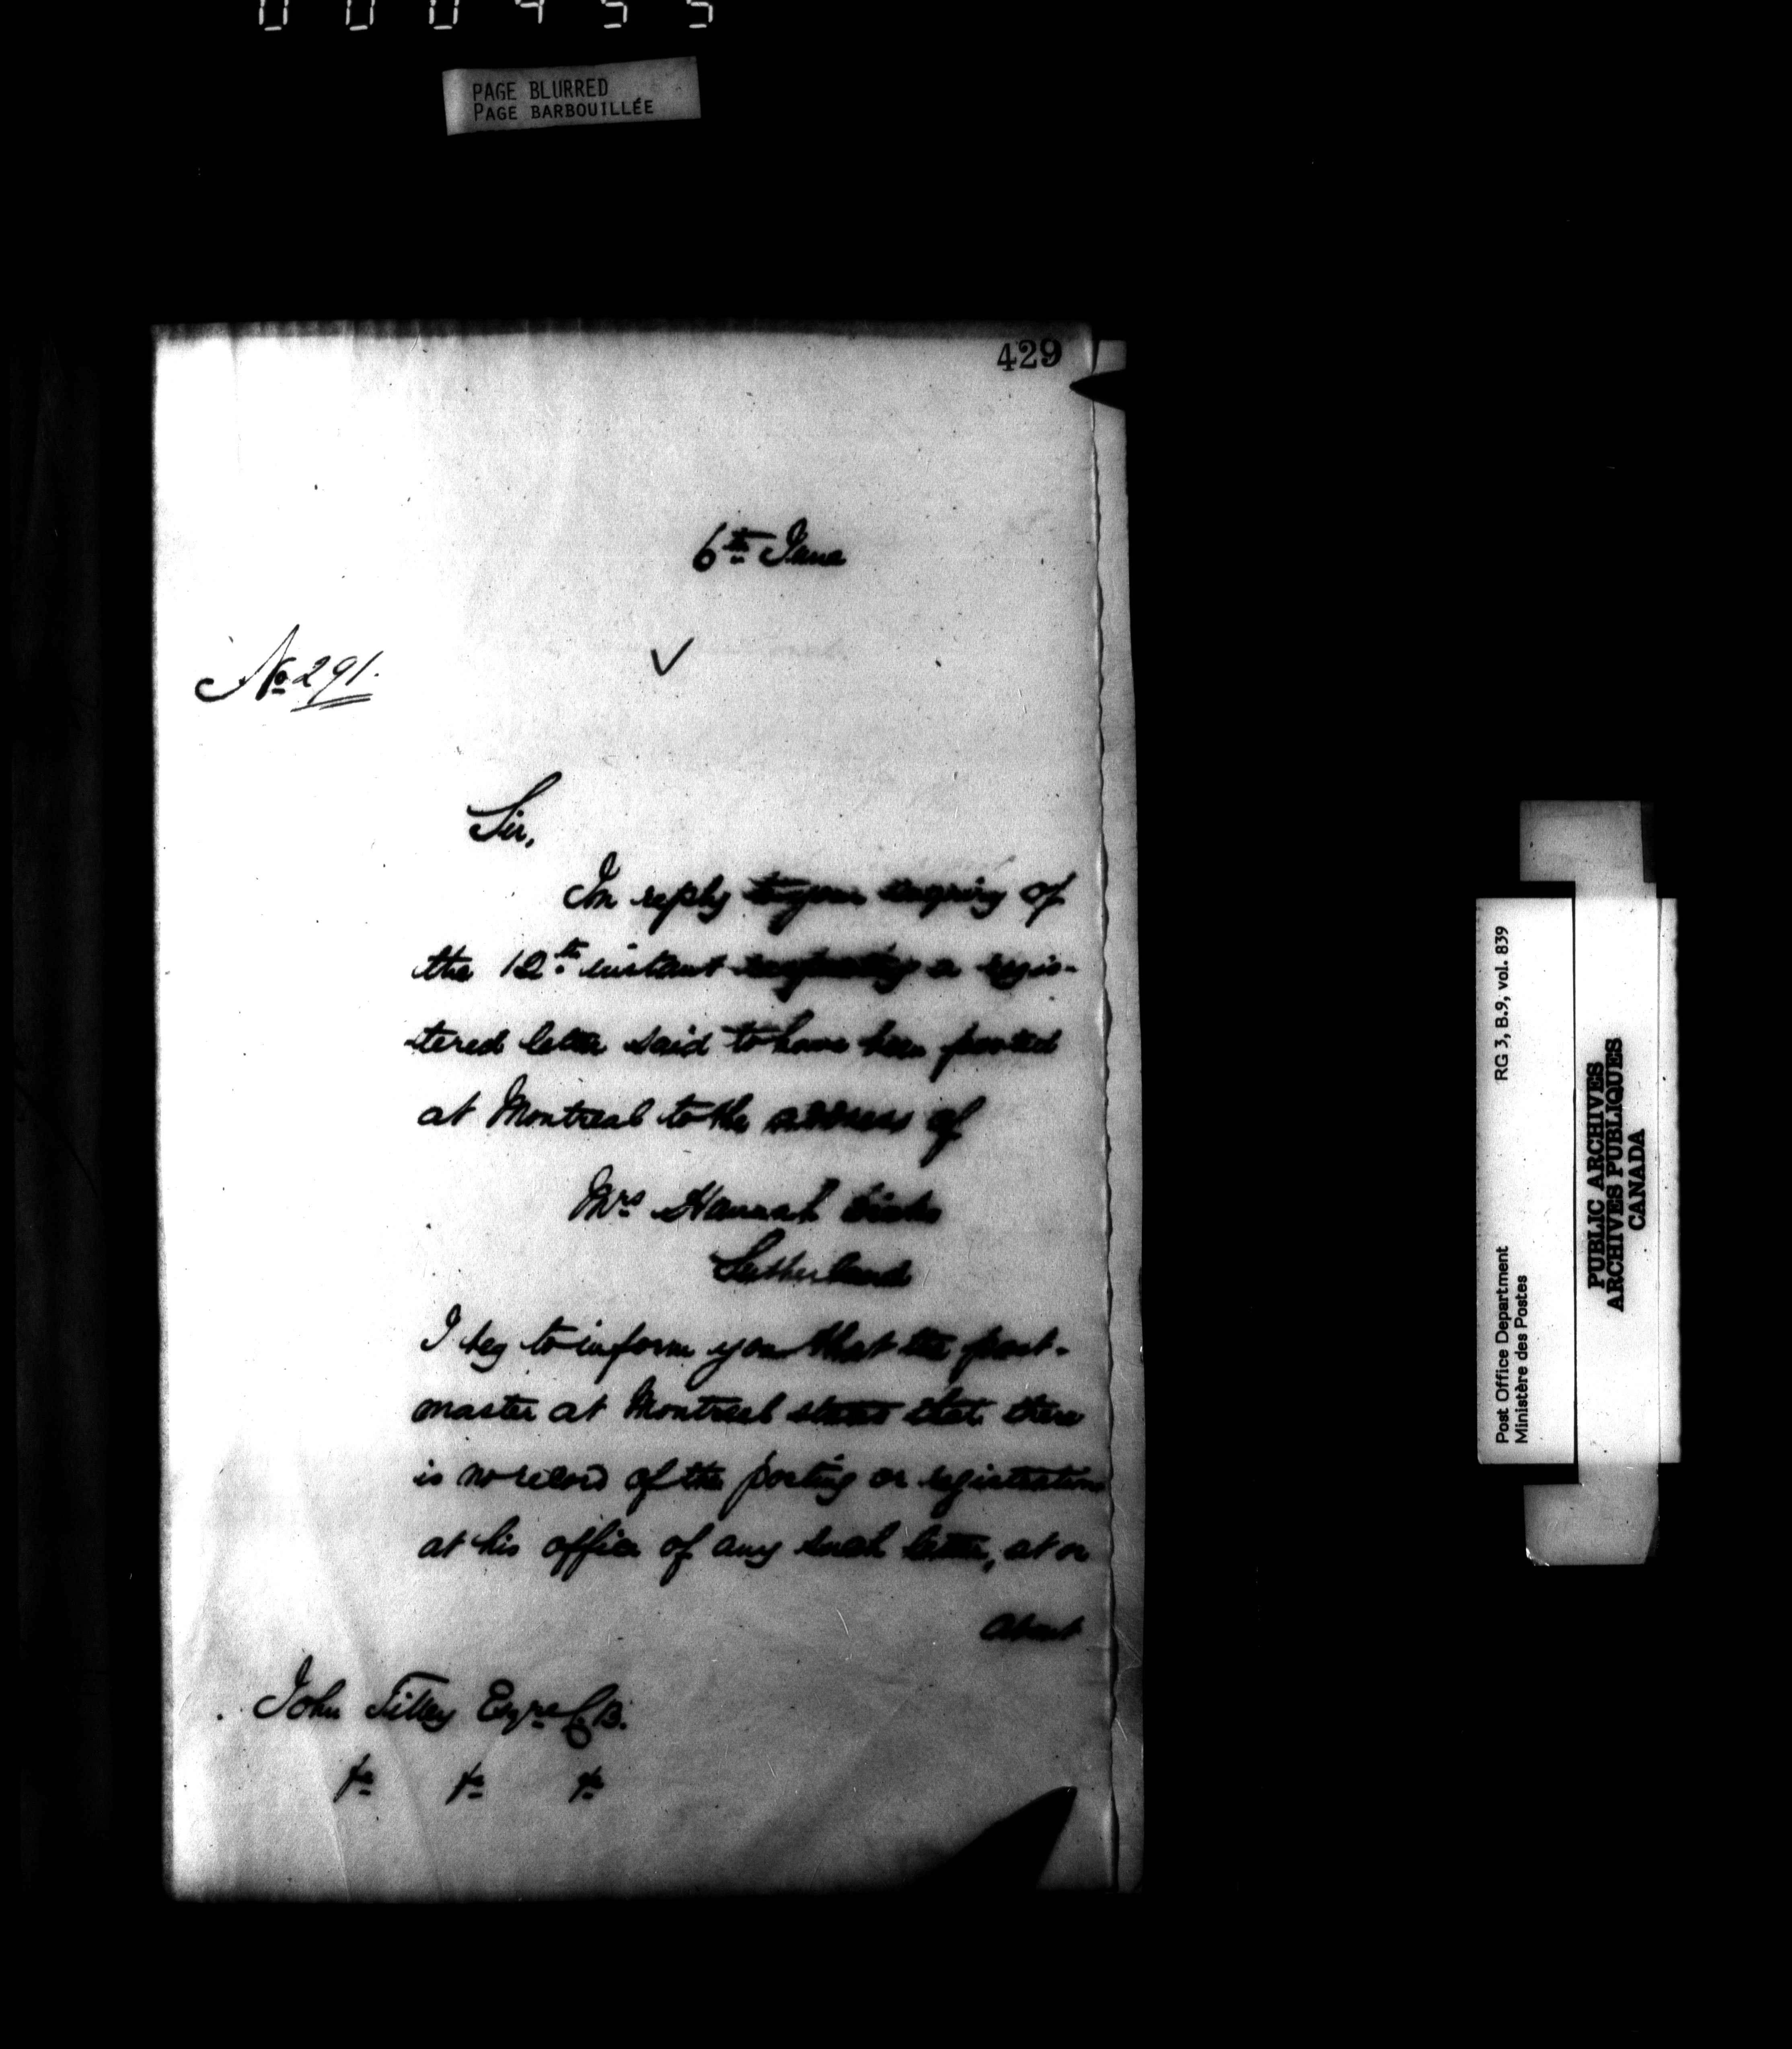 000455
PAGE BLURRED
PAGE BARBOUILLÉE
429
6th June
No 291.
Sir,
In reply to your enquiry of
the 12th instant respecting a regis-
tered letter said to have been posted
at Montreal to the address of
Mrs Hannah
Sutherland
I beg to inform you that the post-
master at Montreal states that there
is no record of the posting or registration
at his office of any such letter, at or
About
John Tilley Esqre C.B.
&c &c &c
Post Office Department RG 3, B.9, vol. 839
Ministère des Postes
PUBLIC ARCHIVES
ARCHIVES PUBLIQUES
CANADA